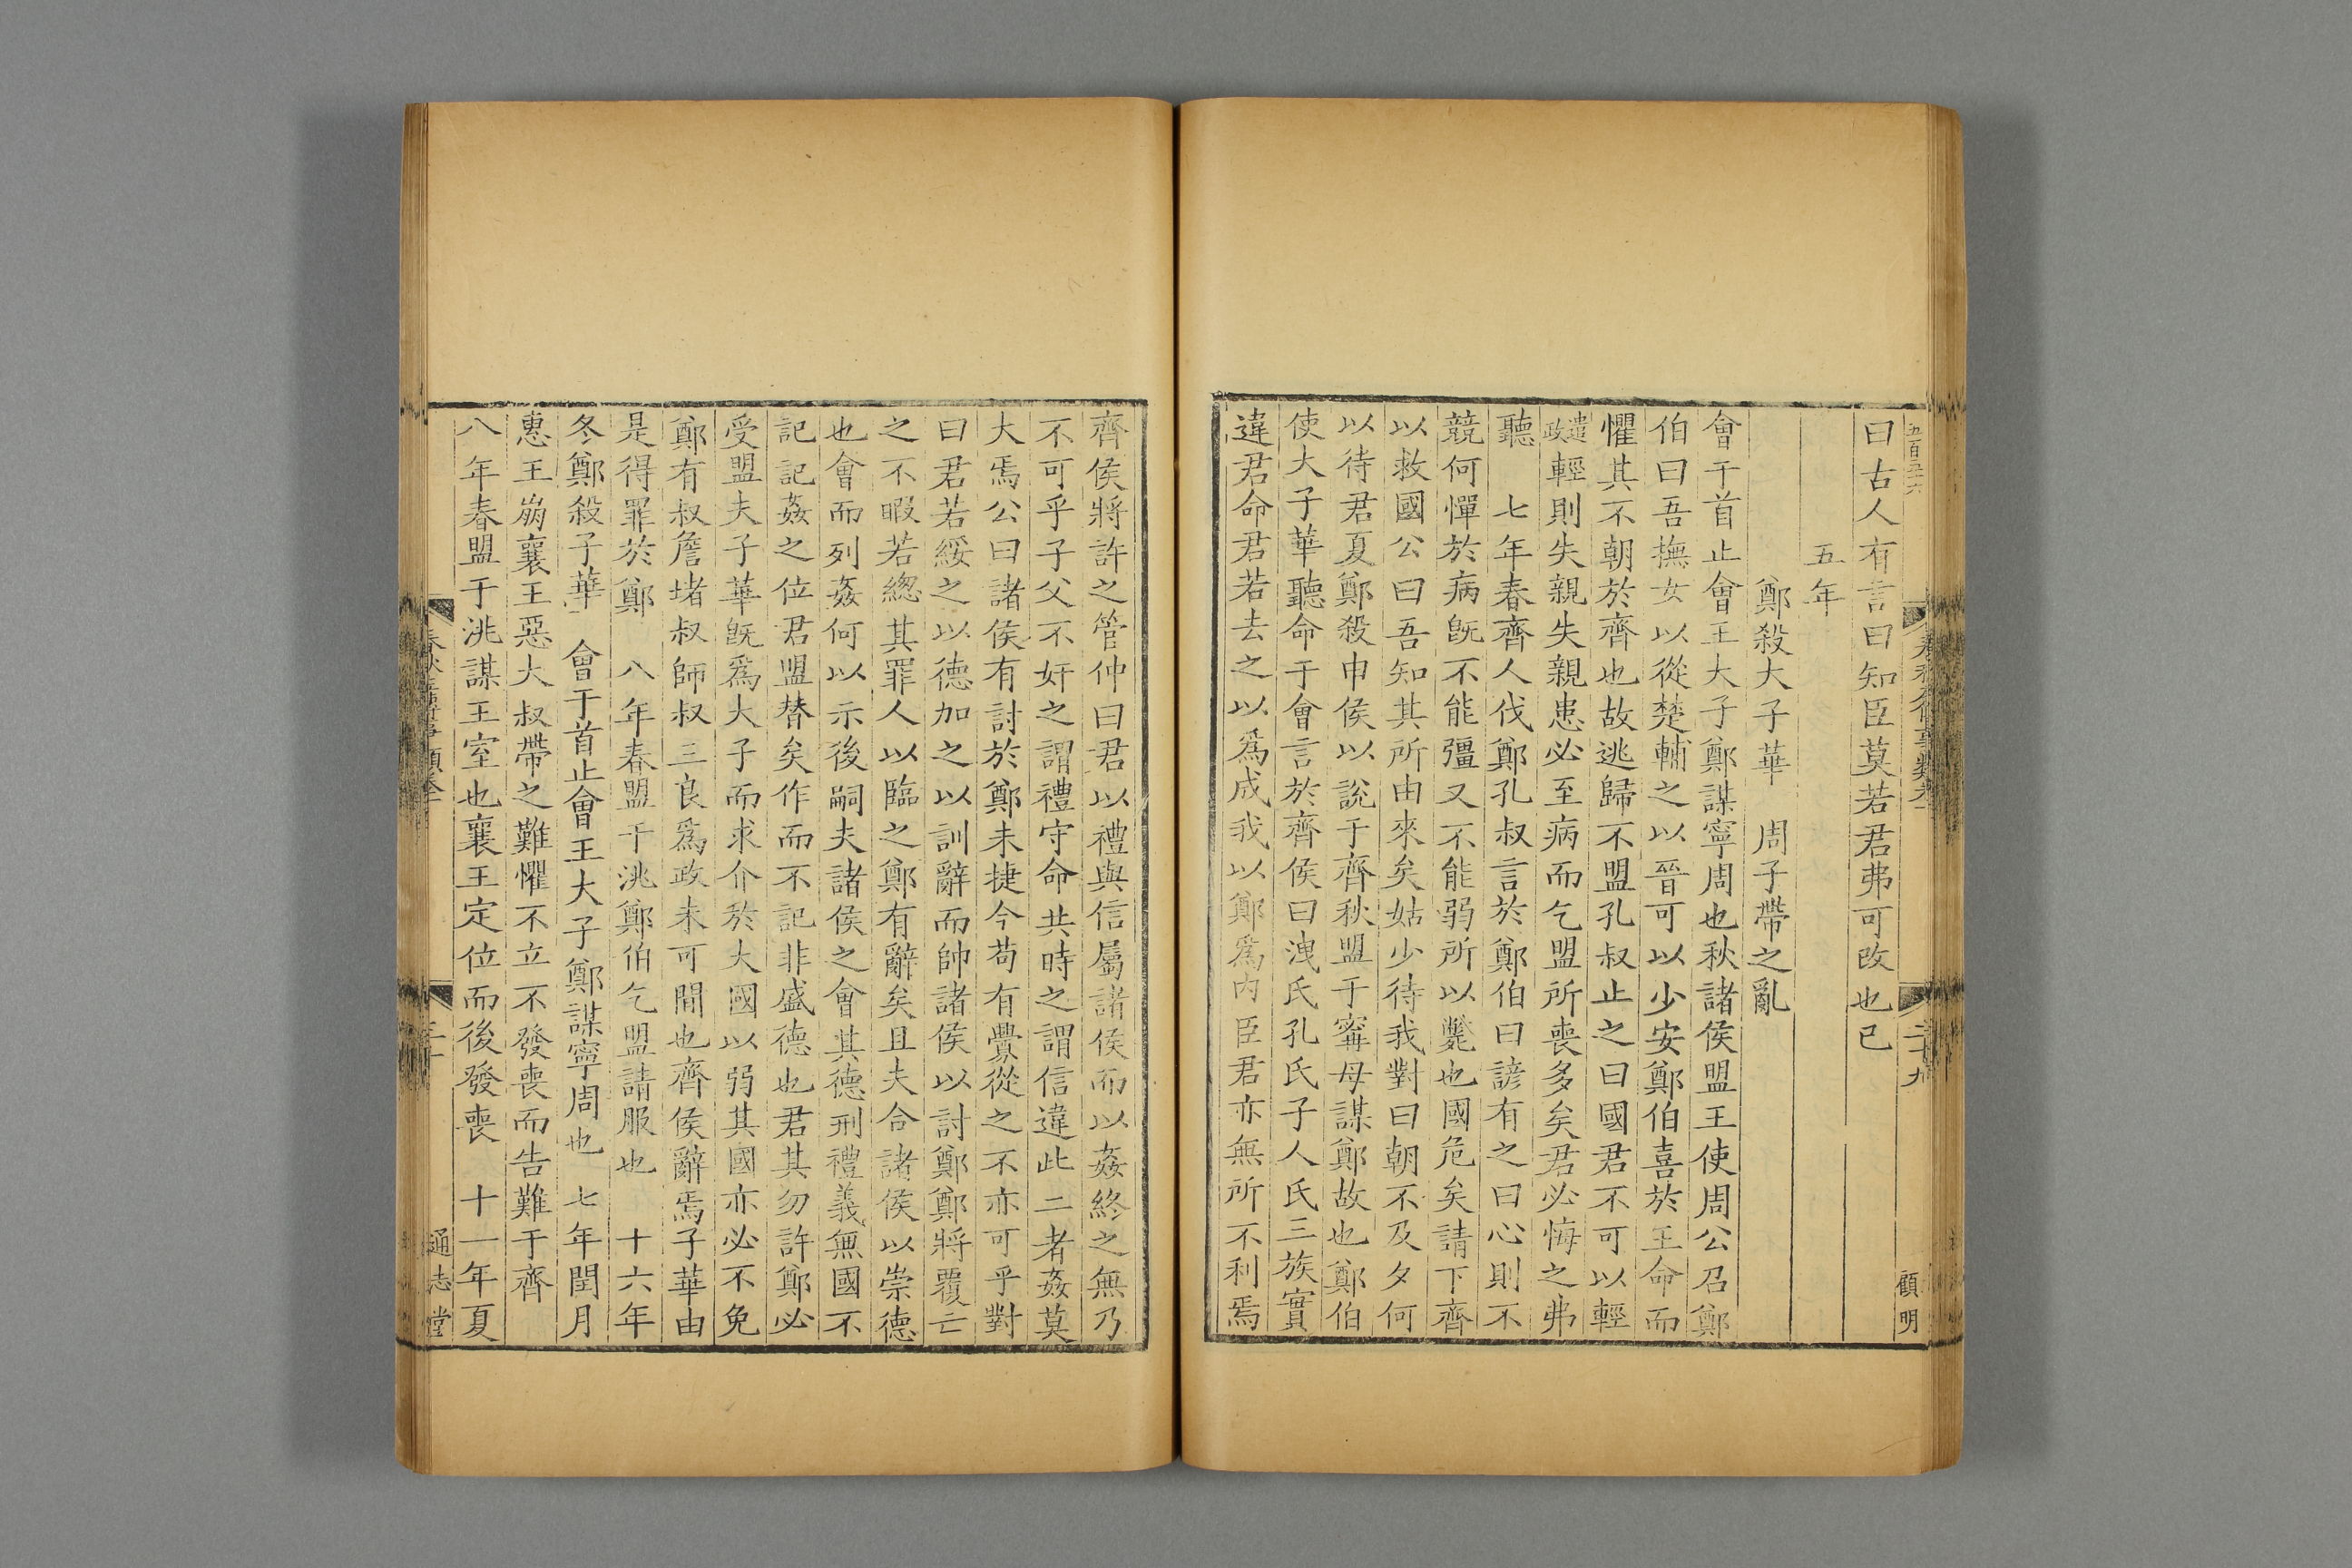 曰古人有言曰知臣莫若君弗可改也已
五年
鄭殺大子華　周子帶之亂
會于首止會王大子鄭謀寧周也秋諸侯盟王使周公召鄭
伯曰吾撫女以從楚輔之以晉可以少安鄭伯喜於王命而
懼其不朝於齊也故逃歸不盟孔叔止之曰國君不可以輕
遣政輕則失親失親患必至病而乞盟所喪多矣君必悔之弗
聽　七年春齊人伐鄭孔叔言於鄭伯曰諺有之曰心則不
競何憚於病既不能彊又不能弱所以斃也國危矣請下齊
以救國公曰吾知其所由來矣姑少待我對曰朝不及夕何
以待君夏鄭殺申侯以說于齊秋盟于甯母謀鄭故也鄭伯
使大子華聽命于會言於齊侯曰洩氏孔氏子人氏三族實
違君命君若去之以爲成我以鄭爲內臣君亦無所不利焉
二十九
顧明
齊侯將許之管仲曰君以禮與信屬諸侯而以姦終之無乃
不可乎子父不奸之謂禮守命共時之謂信違此二者姦莫
大焉公曰諸侯有討於鄭未捷今苟有釁從之不亦可乎對
曰君若綏之以德加之以訓辭而帥諸侯以討鄭鄭將覆亡
之不暇若緫其罪人以臨之鄭有辭矣且夫合諸侯以崇德
也會而列姦何以示後嗣夫諸侯之會其德刑禮義無國不
記記姦之位君盟替矣作而不記非盛德也君其勿許鄭必
受盟夫子華旣爲大子而求介於大國以弱其國亦必不免
鄭有叔詹堵叔師叔三良爲政未可間也齊侯辭焉子華由
是得罪於鄭　八年春盟于洮鄭伯乞盟請服也　十六年
冬鄭殺子華　會于首止會王大子鄭謀寧周也　七年閏月
惠王崩襄王惡大叔帶之難懼不立不發喪而告難于齊
八年春盟于洮謀王室也襄王定位而後發喪　十一年夏
通志堂